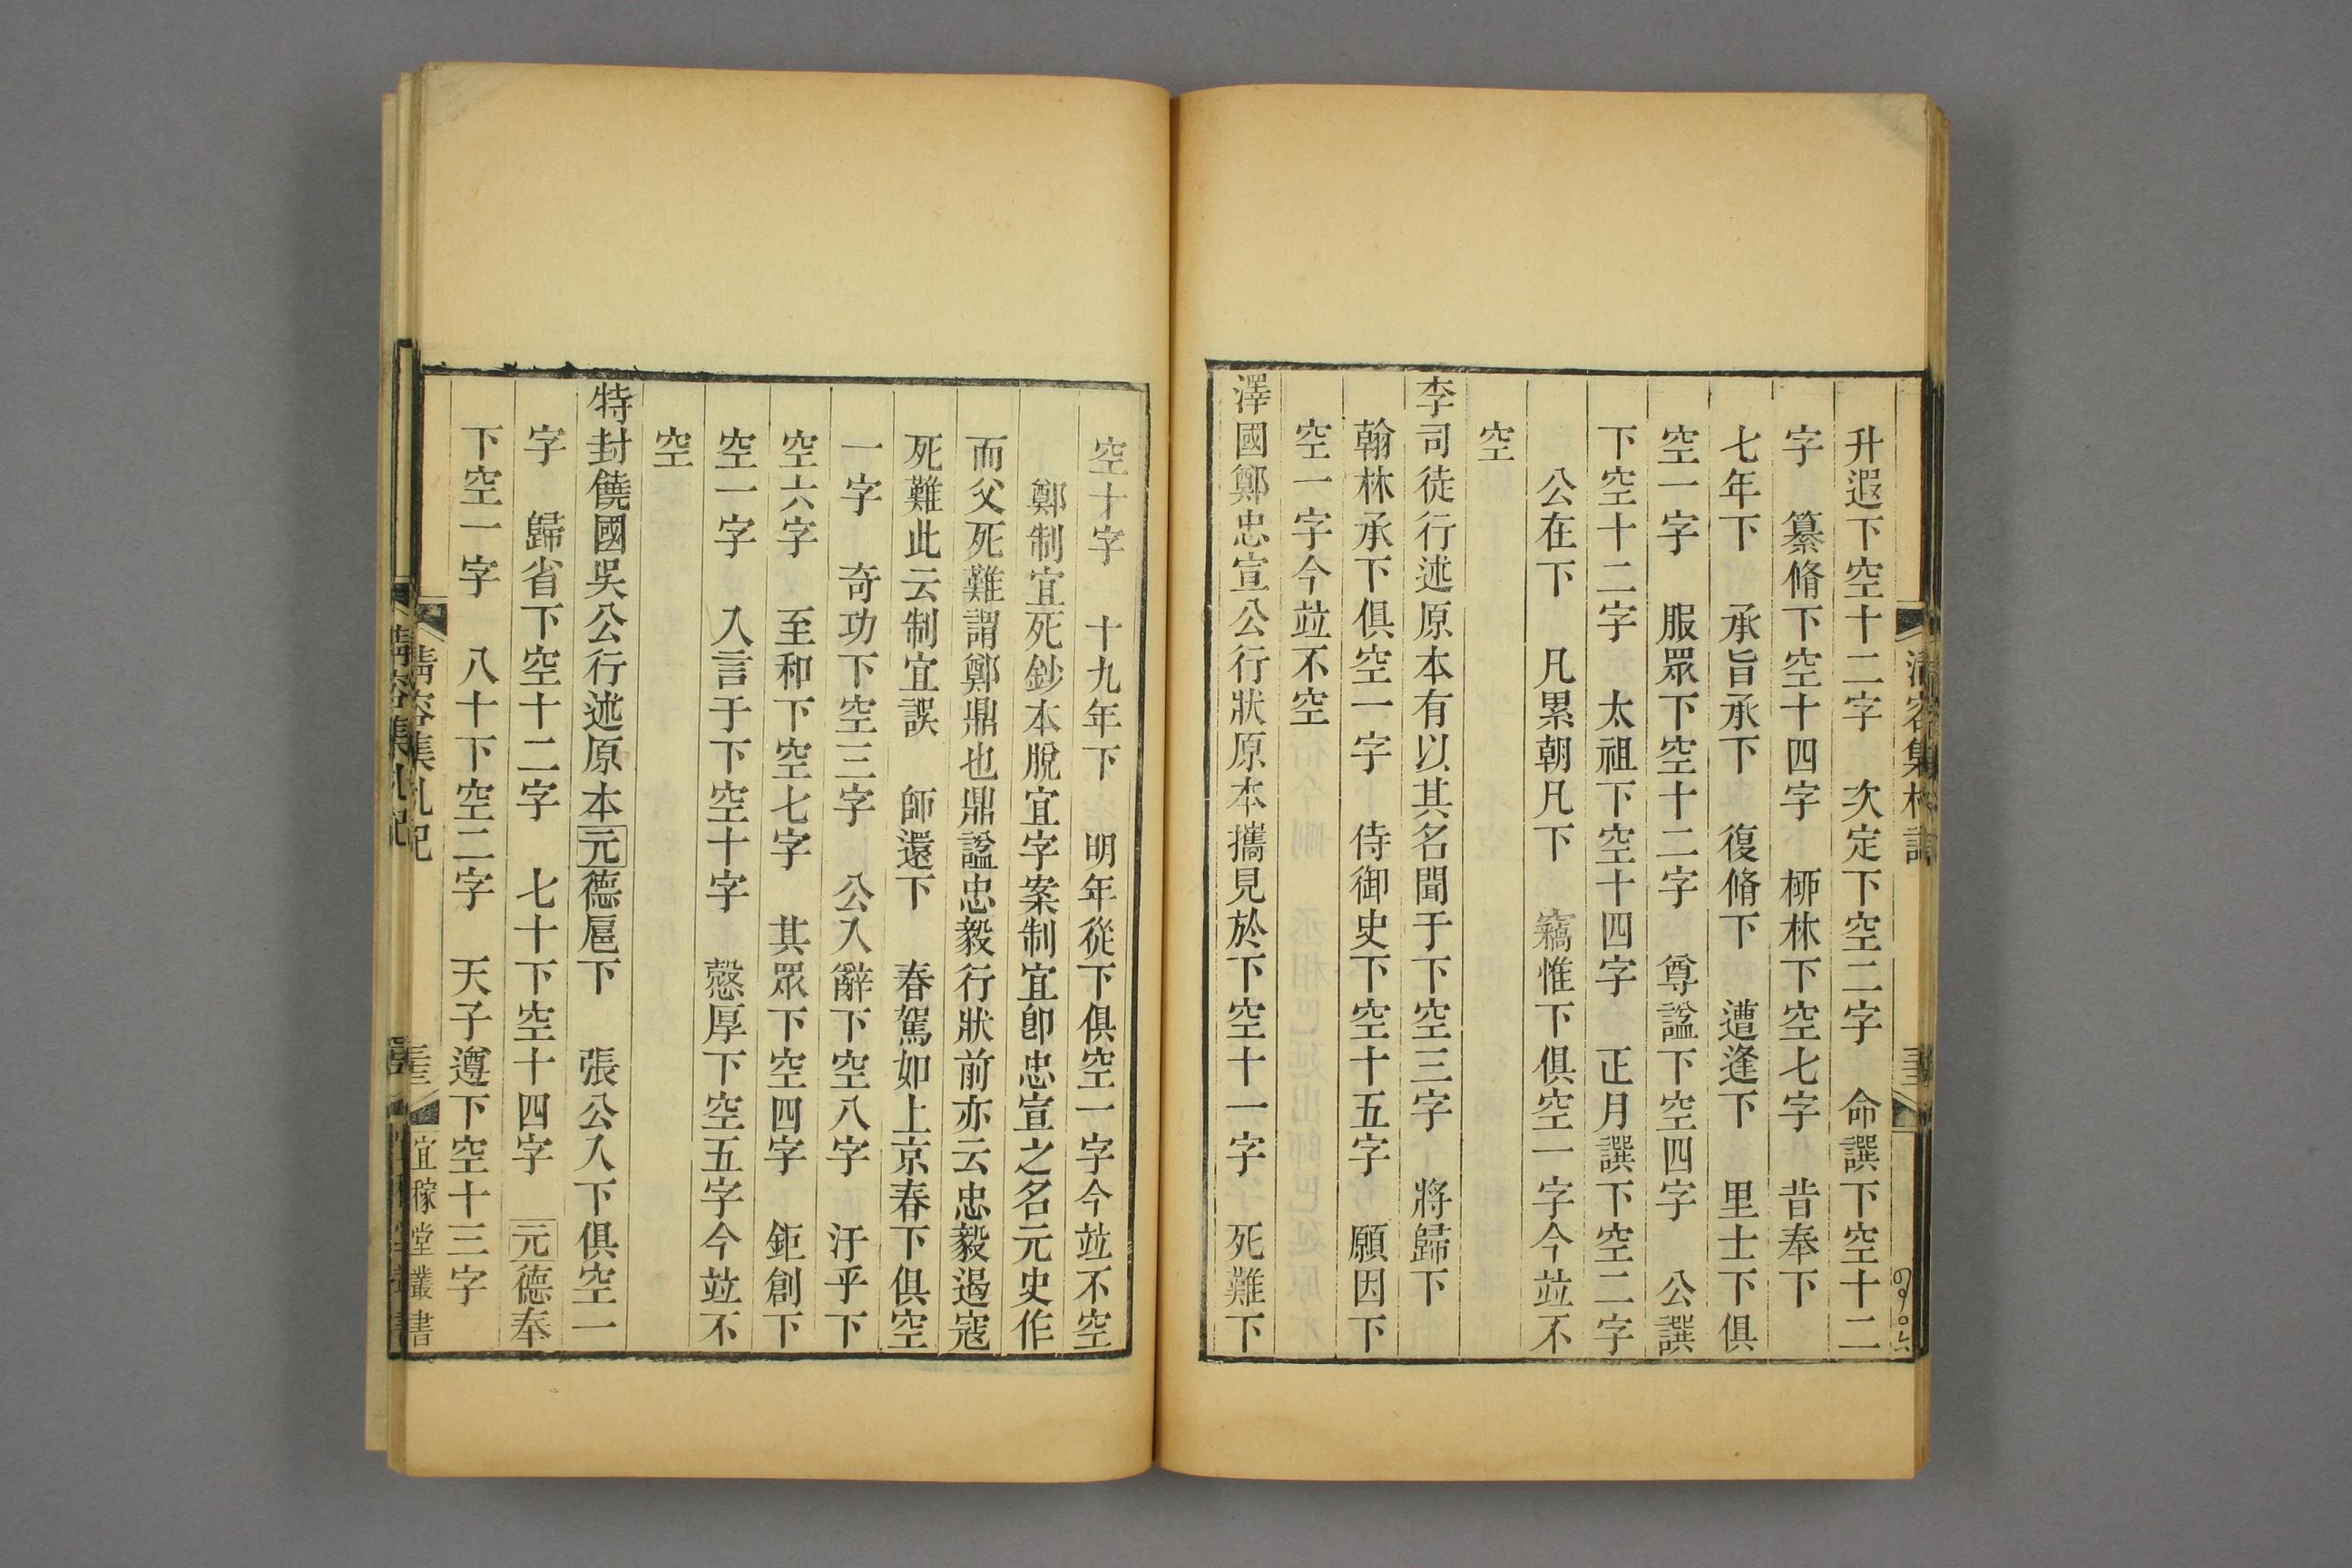 升遐下空十二字　次定下空二字　命譔下空十二
字　纂脩下空十四字　桺林下空七字　昔奉下
七年下　承旨承下　復脩下　遭逢下　里士下俱
空一字　服眾下空十二字　尊諡下空四字　公譔
下空十二字　太祖下空十四字　正月譔下空二字
公在下　凡累朝凡下　竊惟下俱空一字今竝不
空
李司徒行述原本有以其名聞于下空三字　將歸下
翰林承下俱空一字　侍御史下空十五字　願因下
空一字今竝不空
澤國鄭忠宣公行狀原本攜見於下空十一字　死難下
空十字　十九年下　明年從下俱空一字今竝不空
鄭制宜死鈔本脫宜字案制宜卽忠宣之名元史作
而父死難謂鄭鼎也鼎諡忠毅行狀前亦云忠毅遏寇
死難此云制宜誤　師還下　春駕如上京春下俱空
一字　奇功下空三字　公入辭下空八字　汙乎下
空六字　至和下空七字　其眾下空四字　鉅創下
空一字　入言于下空十字　慤厚下空五字今竝不
空
特封饒國吳公行述原本元德扈下　張公入下俱空一
字　歸省下空十二字　七十下空十四字　元德奉
下空一字　八十下空二字　天子遵下空十三字
清容集札記
宜稼堂叢書